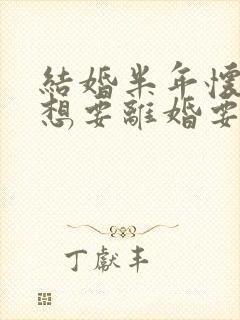 結婚半年懷
想要離婚要
丁獻丰